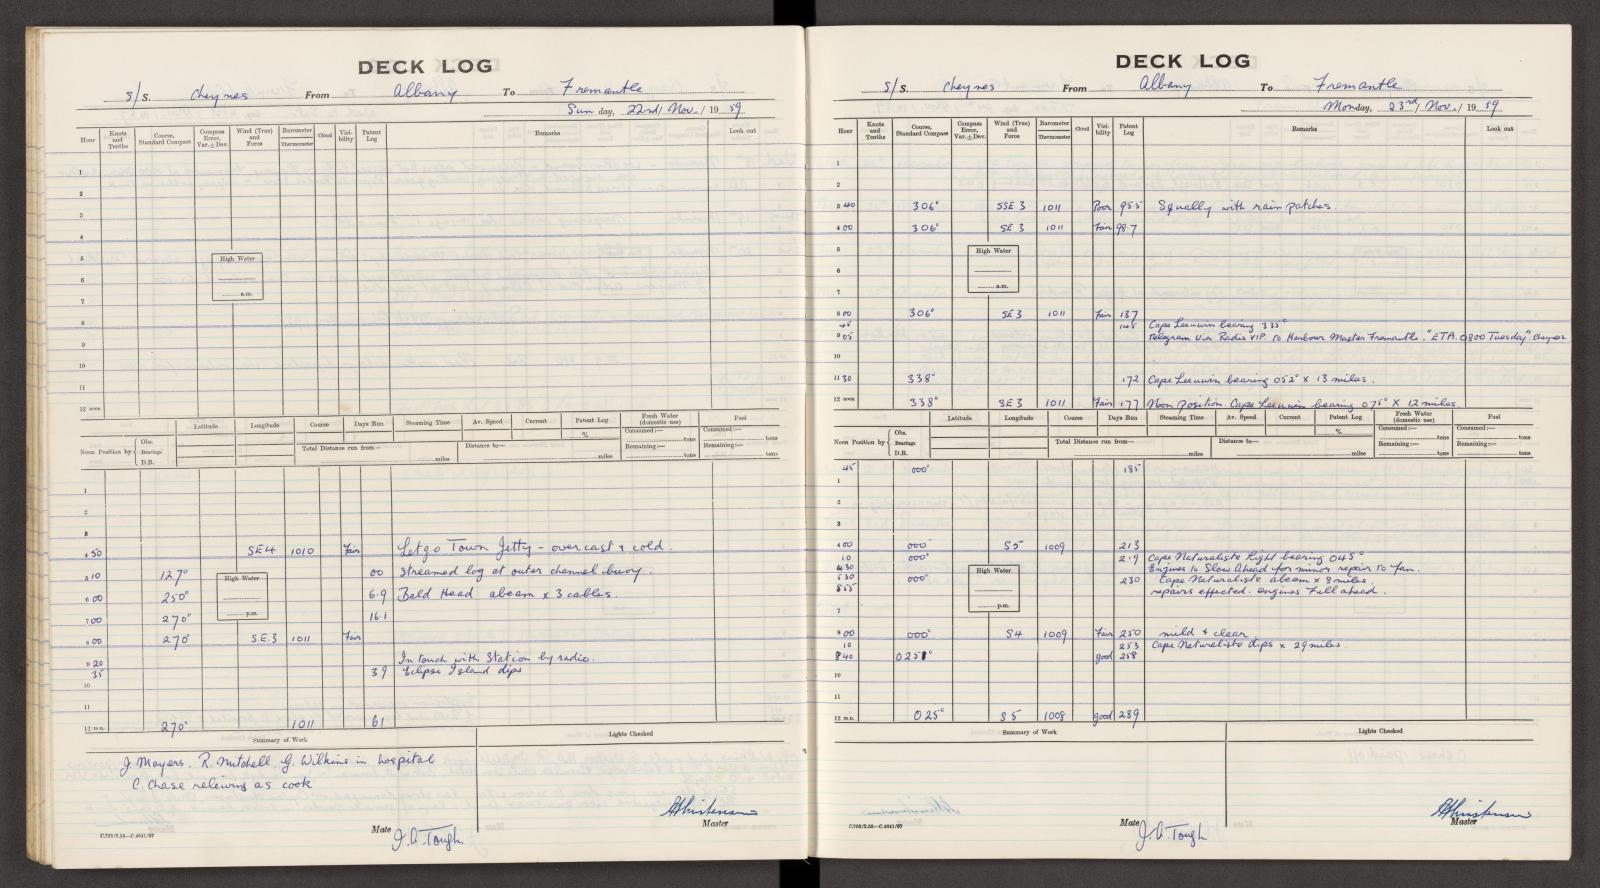 DECK LOG
S/S. Cheynes From Albany To Fremantle
Sunday, 22nd/ Nov./ 1959
Hour Knots and Tenths Course, Standard Compass Compass Error, Var. ± Dev. Wind (True) and Force Barometer Thermometer Cloud Visibility Patent Log Remarks Look out
1
2
3
4
5 High Water
6
7 a.m.
8
9
10
11
12 noon
Latitude Longitude Course Days Run Steaming Time Av. Speed Current Patent Log % Fresh Water (domestic use) Fuel
Consumed:— tons Consumed:— tons
Noon Position by Obs. Bearings D.R. Total Distance run from— miles Distance to— miles Remaining:— tons Remaining:— tons
1
2
3
4 50 SE4 1010 Fair Let go Town Jetty - overcast & cold.
5 10 127° High Water 00 Streamed log at outer channel buoy.
6 00 250° 6.9 Bald Head abeam x 3 cables.
7 00 270° p.m. 16.1
8 00 270° S.E.3 1011 Fair
9 20 In touch with Station by radio.
35 39 Eclipse Island dips
10
11
12 m.n. 270° 1011 61
Summary of Work Lights Checked
J. Mayers. R. Mitchell G. Wilkins in hospital
C. Chase relieving as cook
Mate J.A. Tough Master
C.703/2.59—C.4641/57
DECK LOG
S/S. Cheynes From Albany To Fremantle
Monday, 23rd/ Nov./ 1959
Hour Knots and Tenths Course, Standard Compass Compass Error, Var. ± Dev. Wind (True) and Force Barometer Thermometer Cloud Visibility Patent Log Remarks Look out
1
2
3 40 306° SSE 3 1011 Poor 95.5 Squally with rain patches.
4 00 306° SE 3 1011 Fair 98.7
5 High Water
6
7 a.m.
8 00 306° SE 3 1011 Fair 137
45 145 Cape Leeuwin bearing 335°
9 05 Telegram via Radio VIP to Harbour Master Fremantle. "ETA. 0800 Tuesday". Cheynes.
10
11 30 338° 172 Cape Leeuwin bearing 052° X 13 miles.
12 noon 338° SE 3 1011 Fair 177 Noon Position. Cape Leeuwin bearing 075° X 12 miles.
Latitude Longitude Course Days Run Steaming Time Av. Speed Current Patent Log % Fresh Water (domestic use) Fuel
Consumed:— tons Consumed:— tons
Noon Position by Obs. Bearings D.R. Total Distance run from— miles Distance to— miles Remaining:— tons Remaining:— tons
45 000° 185
1
2
3
4 00 000° S5 1009 213
10 000° 219 Cape Naturaliste Light bearing 045°
4 30 High Water Engines to Slow Ahead for minor repair to fan.
5 30 000° 230 Cape Naturaliste abeam x 8 miles.
5 55 repairs effected. engines Full ahead.
7 p.m.
8 00 000° S4 1009 Fair 250 mild & clear
10 253 Cape Naturaliste dips x 29 miles.
8 40 025° good 258
10
11
12 m.n. 025° S5 1008 good 289
Summary of Work Lights Checked
Mate J.A. Tough Master
C.703/2.59—C.4641/57